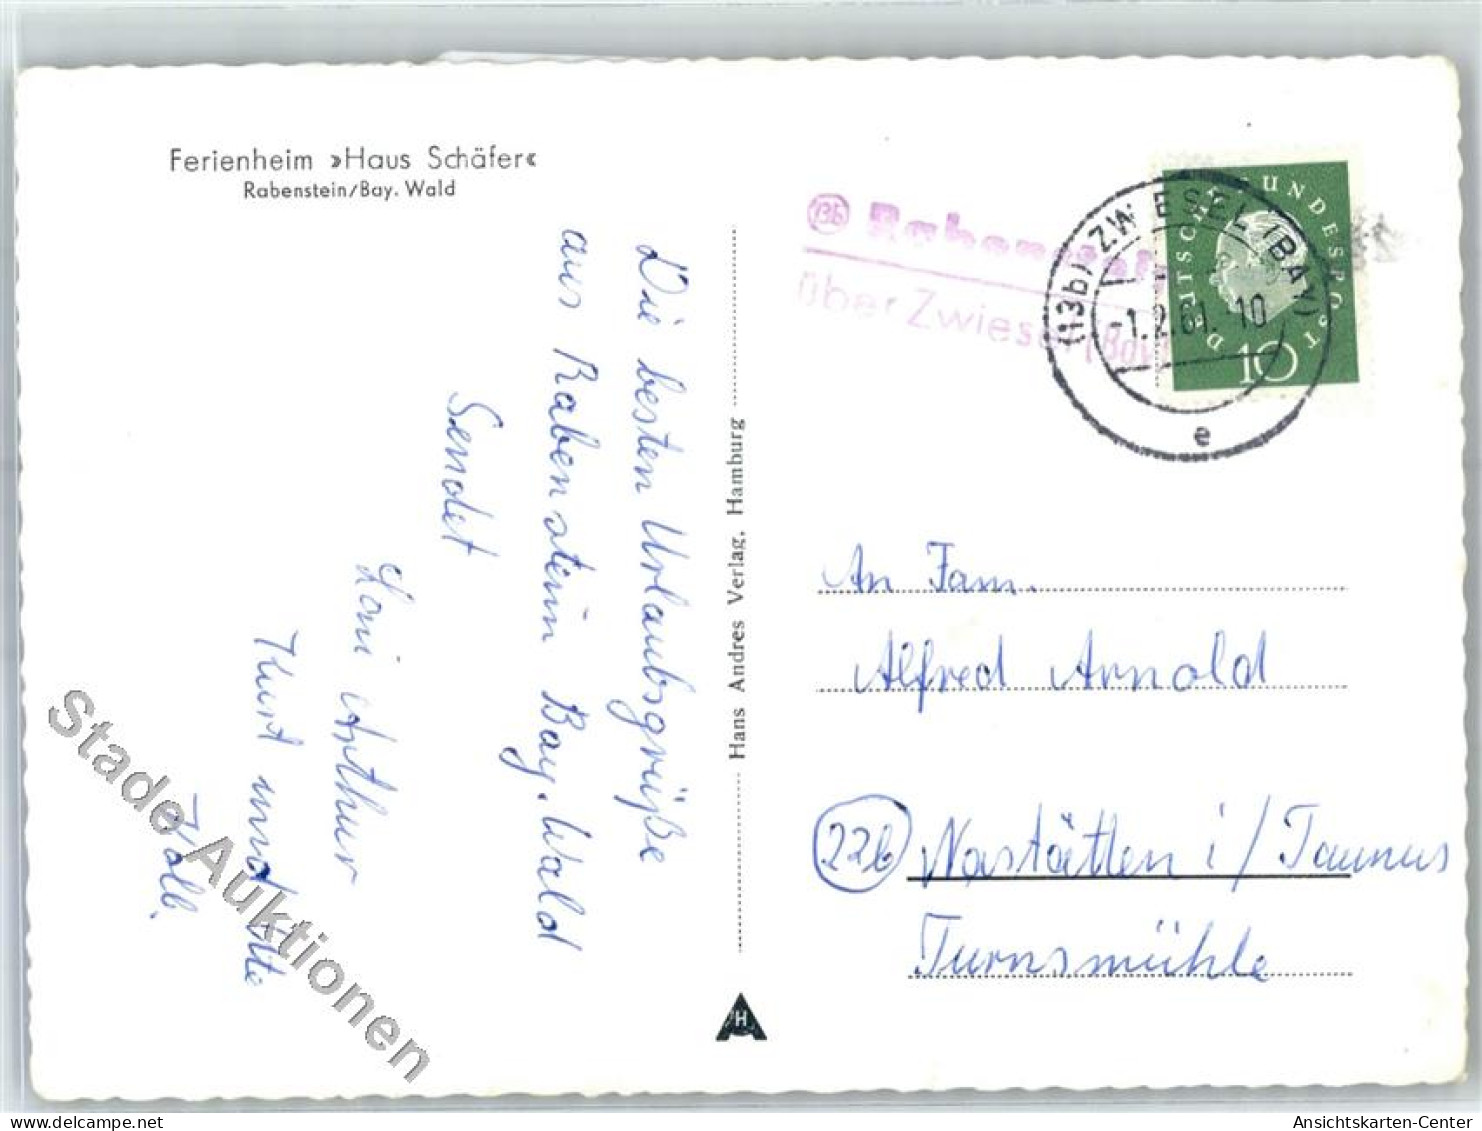 Ferienheim »Haus Schäfer«
Rabenstein/Bay. Wald
Die besten Urlaubsgrüße
aus Rabenstein Bay. Wald
Sendet
Loni Arthur
Kurt und Ute
Kolb.
Hans Andres Verlag, Hamburg
H
13b Rabenstein
über Zwiesel (Bay)
(13b) ZWIESEL (BAY)
-1.2.61. 10
e
DEUTSCHE BUNDESPOST
10
An Fam.
Alfred Arnold
22b Nastätten i/Taunus
Turnsmühle
Stade Auktionen
Ansichtskarten-Center
oldthing.de